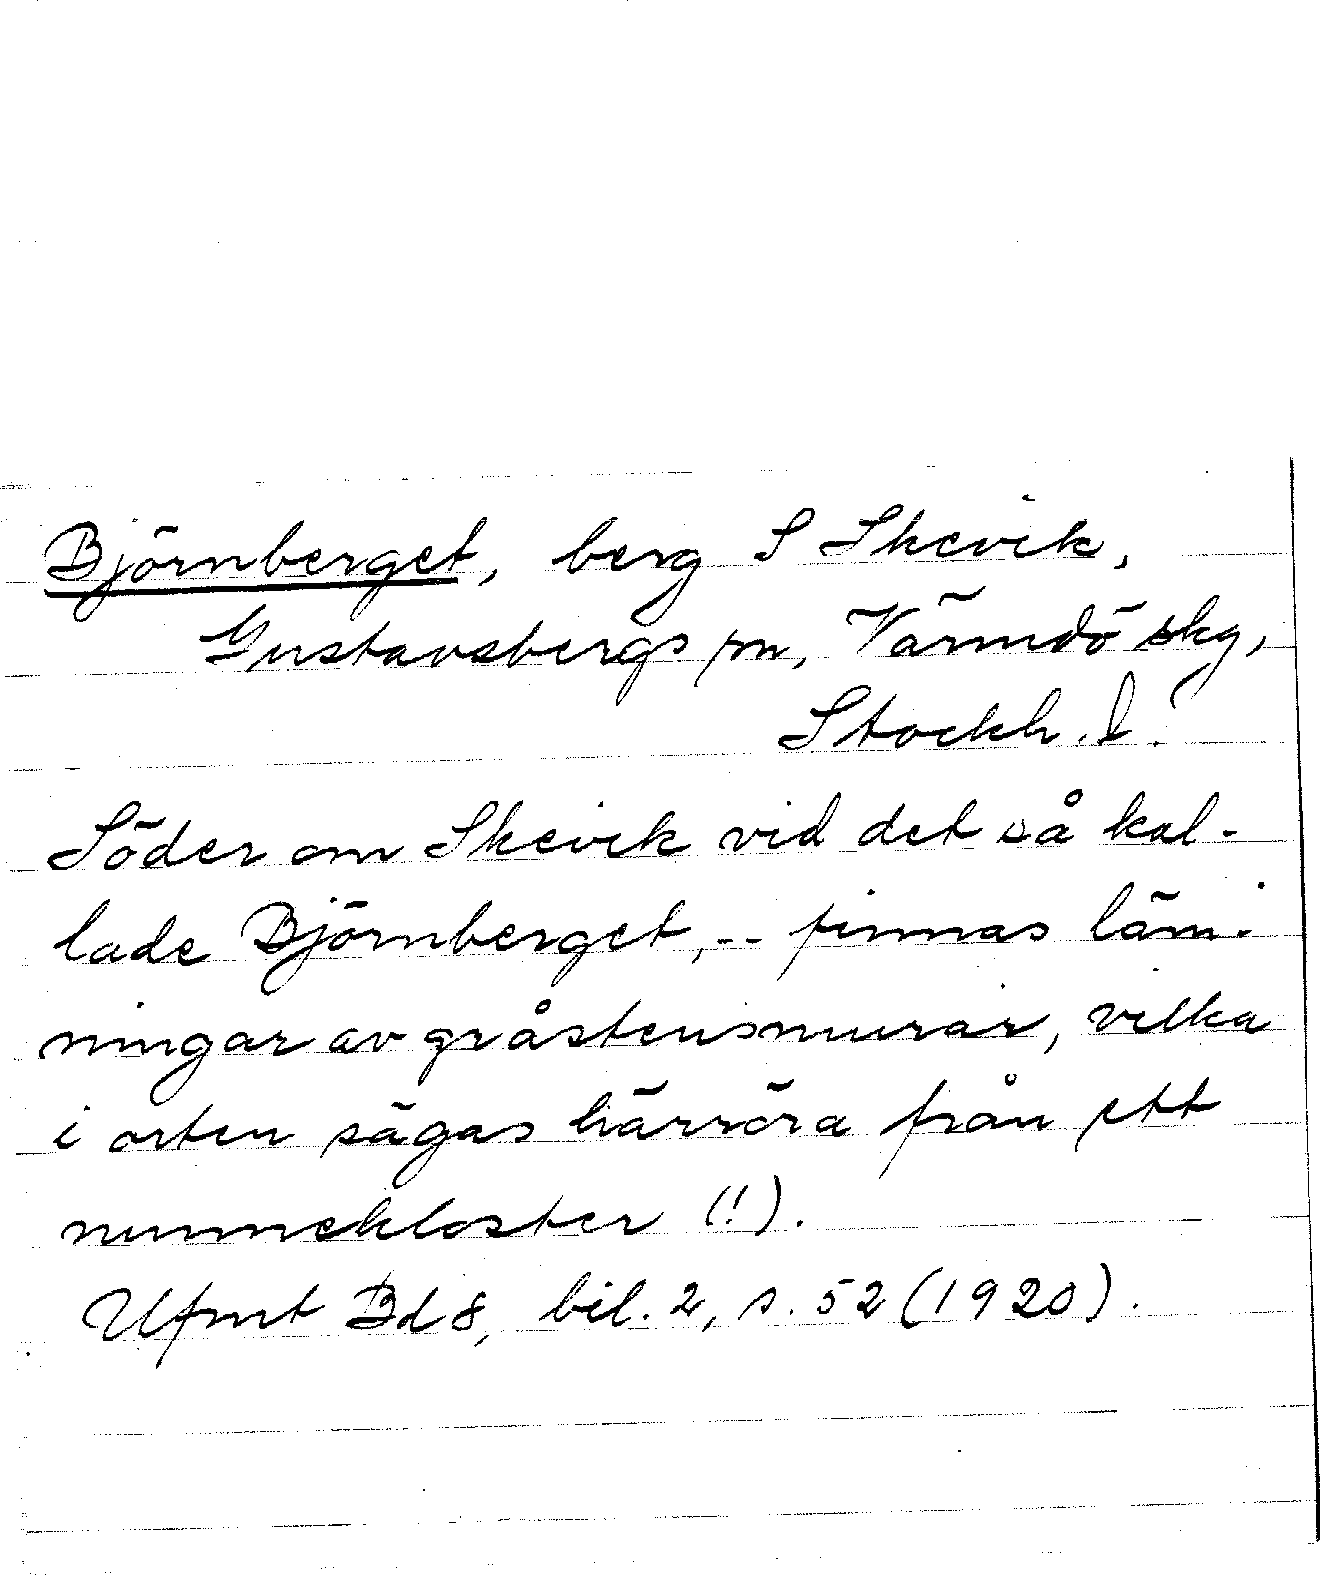 Björnberget, berg S Skevik,
Gustavsbergs sn, Värmdö skg,
Stockh. l.
Söder om Skevik vid det så kal-
lade Björnberget, -- finnas läm-
ningar av gråstensmurar, vilka
i orten sägas härröra från ett
nunnekloster (!).
Ufmt Bd 8, bil. 2, s. 52 (1920).